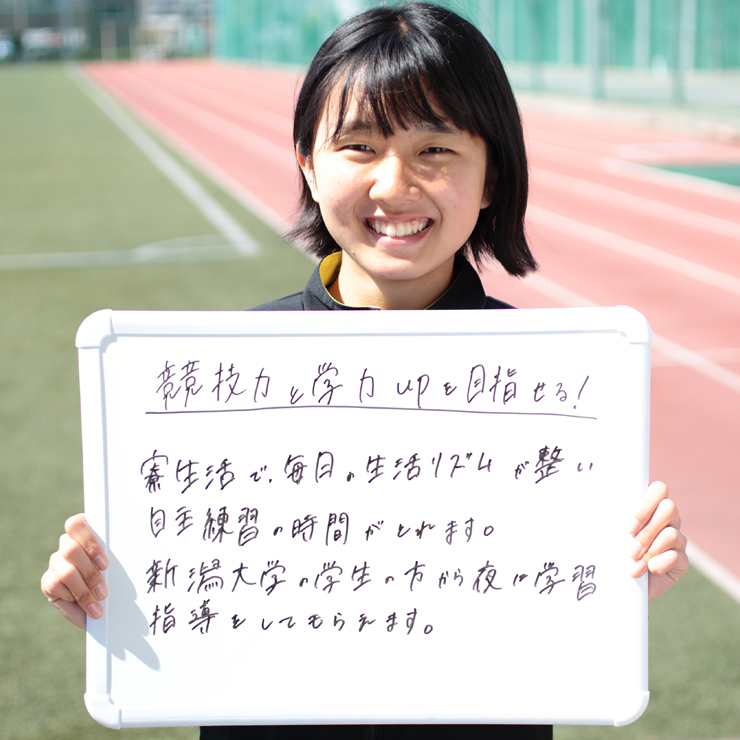 競技力と学力upを目指せる!
寮生活で、毎日の生活リズムが整い
自主練習の時間がとれます。
新潟大学の学生の方から夜は学習
指導をしてもらえます。